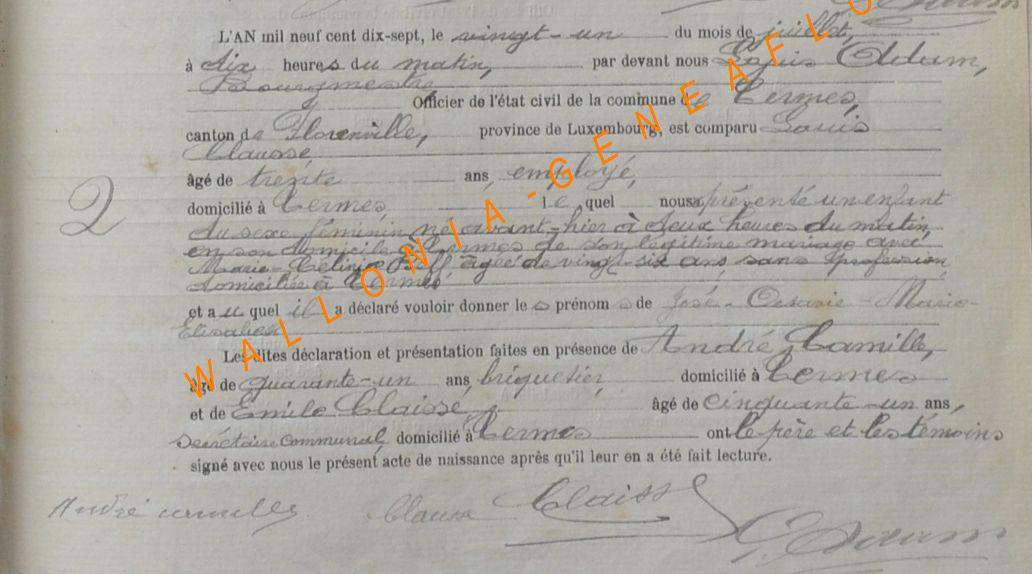 L'AN mil neuf cent dix-sept, le vingt-un du mois de juillet,
à dix heures du matin, par devant nous Louis Adam,
Bourgmestre
Officier de l'état civil de la commune de Termes,
canton de Florenville, province de Luxembourg, est comparu Louis
Clausse,
âgé de trente ans, employé,
domicilié à Termes, le quel nous a présenté un enfant
du sexe féminin né avant-hier à deux heures du matin
en son domicile à Termes de son légitime mariage avec
Marie-Célinie âgée de vingt-six ans, sans profession,
domiciliée à Termes
et au quel il a déclaré vouloir donner les prénoms de José - Marie -
Elisabeth
Les dites déclaration et présentation faites en présence de André, Camille,
âgé de quarante-un ans, briquetier, domicilié à Termes
et de Emile Claisse, âgé de cinquante-un ans,
secrétaire communal, domicilié à Termes ont le père et les témoins
signé avec nous le présent acte de naissance après qu'il leur en a été fait lecture.
2
André Clausse Claisse L. Adam
WALLONIA-GENEAFLO